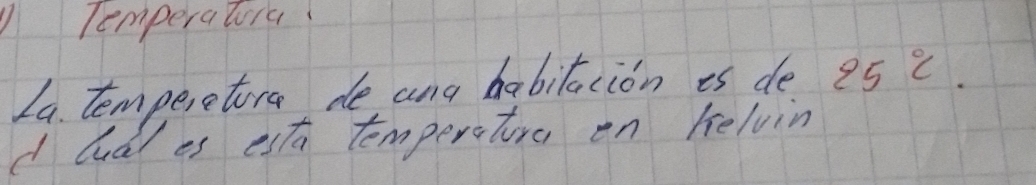 1) Temperatura.
La. temperetura de una habitación es de 25 °C.
d Cual es esta temperatura en Kelvin